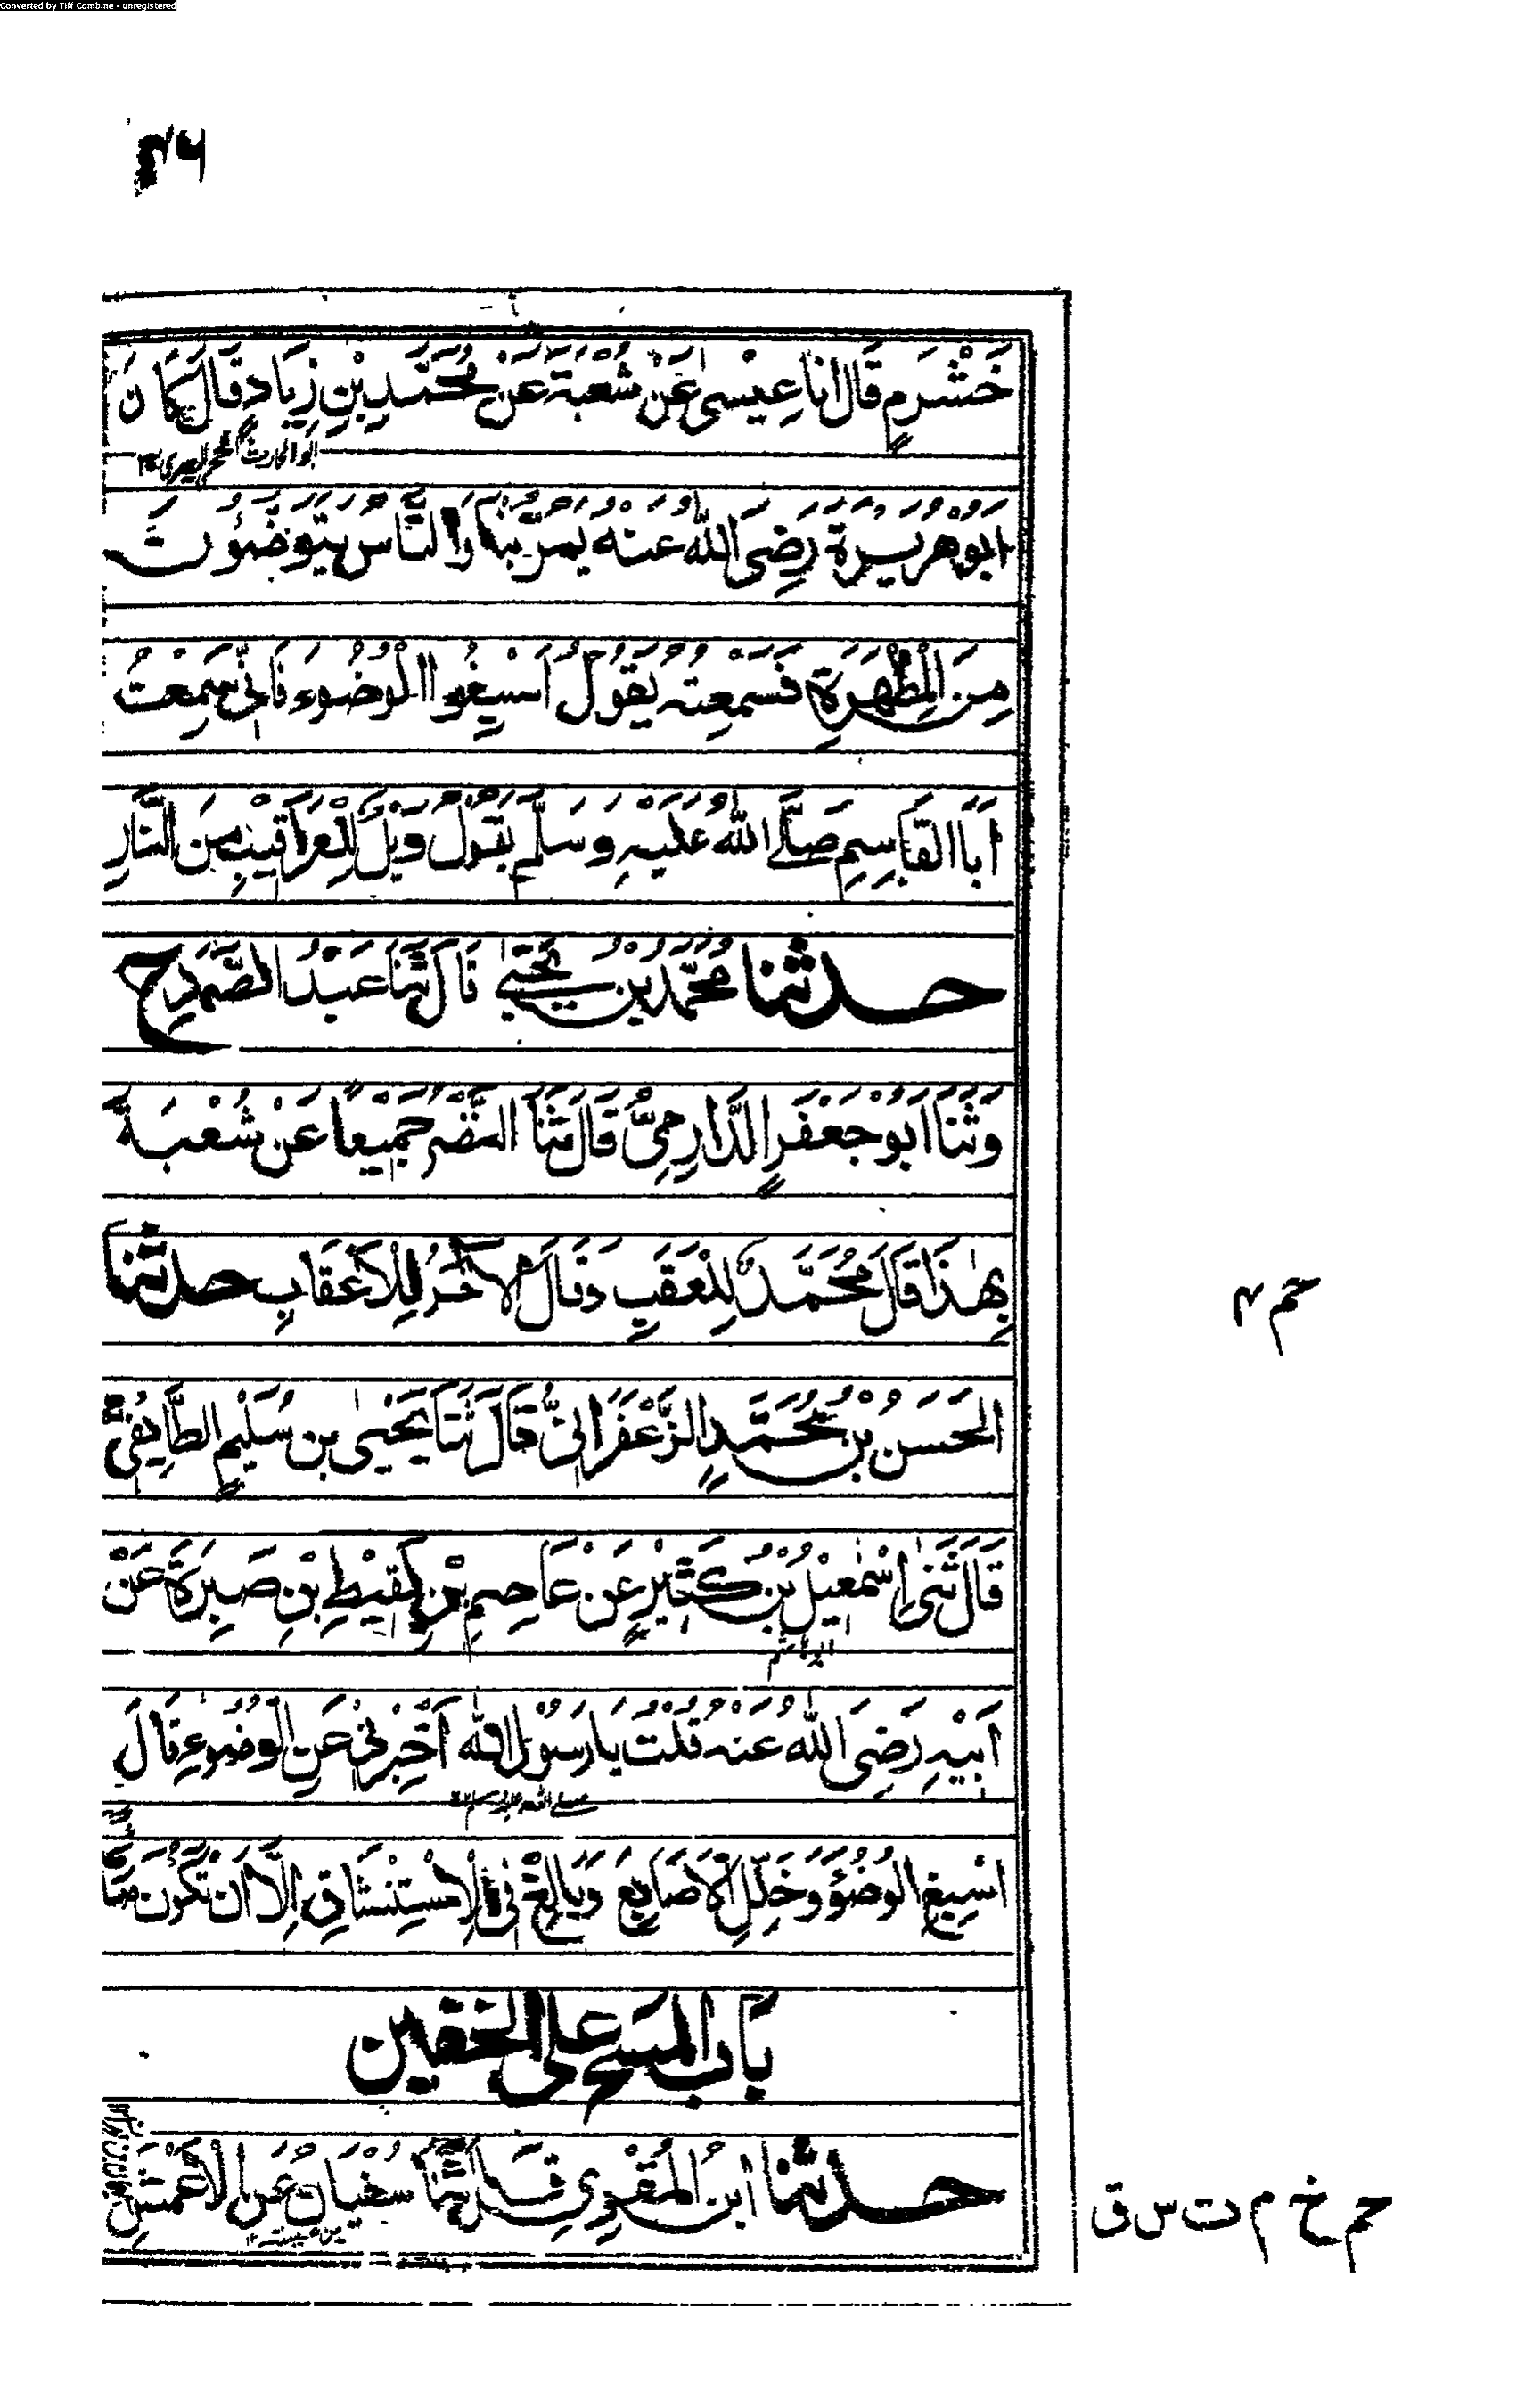 Converted by Tiff Combine - unregistered
خَشْرَمٍ قَالَ اَنَا عِيْسٰى عَنْ شُعْبَةَ عَنْ مُحَمَّدِ بْنِ زِيَادٍ قَالَ كَانَ
اَبُوْ هُرَيْرَةَ رَضِىَ اللّٰهُ عَنْهُ يَمُرُّ بِنَا وَالنَّاسُ يَتَوَضَّوُنَ
مِنَ الْمِطْهَرَةِ فَسَمِعْتُهُ يَقُوْلُ اَسْبِغُوا الْوُضُوءَ فَاِنِّى سَمِعْتُ
اَبَا الْقَاسِمِ صَلَّے اللّٰهُ عَلَيْهِ وَسَلَّمَ يَقُوْلُ وَيْلٌ لِلْعَرَاقِيْبِ مِنَ النَّارِ
حدثنا مُحَمَّدُ بْنُ يَحْيٰى قَالَ ثَنَا عَبْدُ الصَّمَدِ ح
وَثَنَا اَبُوْ جَعْفَرٍ الدَّارِمِىُّ قَالَ ثَنَا النَّضْرُ جَمِيْعًا عَنْ شُعْبَةَ
بِهٰذَا قَالَ مُحَمَّدٌ لِلْعَقِبِ وَقَالَ الْاٰخَرُ لِلْاَعْقَابِ حدثنا
حم ٤
الْحَسَنُ بْنُ مُحَمَّدٍ الزَّعْفَرَانِىُّ قَالَ ثَنَا يَحْيٰى بن سُلَيْمٍ الطَّائِفِىُّ
قَالَ ثَنِىْ اِسْمٰعِيْلُ بْنُ كَثِيْرٍ عَنْ عَاصِمِ بْنِ لَقِيْطِ بْنِ صَبِرَةَ عَنْ
اَبِيْهِ رَضِىَ اللّٰهُ عَنْهُ قُلْتُ يَا رَسُوْلَ اللّٰهِ اَخْبِرْنِىْ عَنِ الْوُضُوْءِ قَالَ
صلے اللّه عليه وسلم ١٢
اَسْبِغِ الْوُضُوْءَ وَخَلِّلِ الْاَصَابِعَ وَبَالِغْ فِى الْاِسْتِنْشَاقِ اِلَّا اَنْ تَكُوْنَ
بَابُ المسح على الخفين
حدثنا ابنُ الْمُقْرِى قَالَ ثَنَا سُفْيَانُ عَنِ الْاَعْمَشِ
حم خ م ت س ق